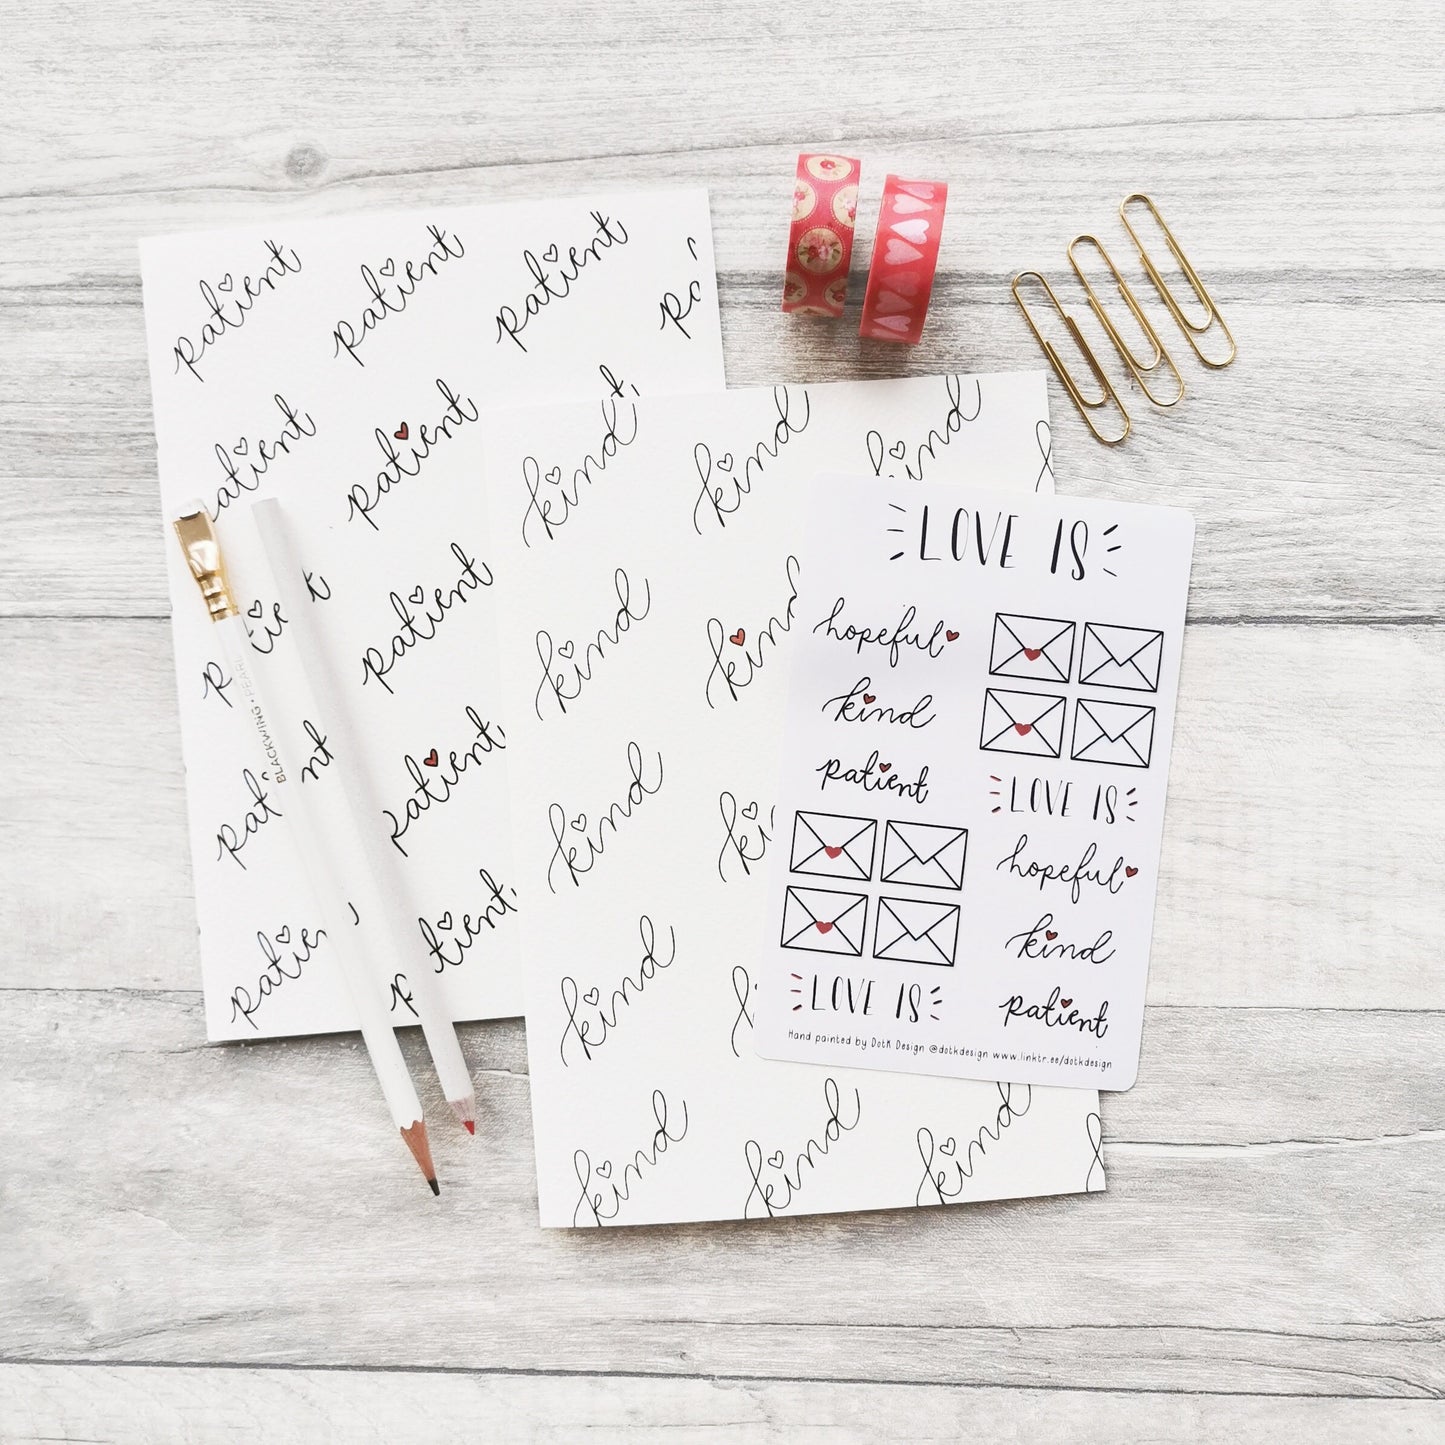 patient patient patient
patient patient
patient
patient
kind kind kind
kind kind
kind
kind
kind kind kind
BLACKWING • PEARL
LOVE IS
hopeful
kind
patient
LOVE IS
LOVE IS
hopeful
kind
patient
Hand painted by DotK Design @dotkdesign www.linktr.ee/dotkdesign